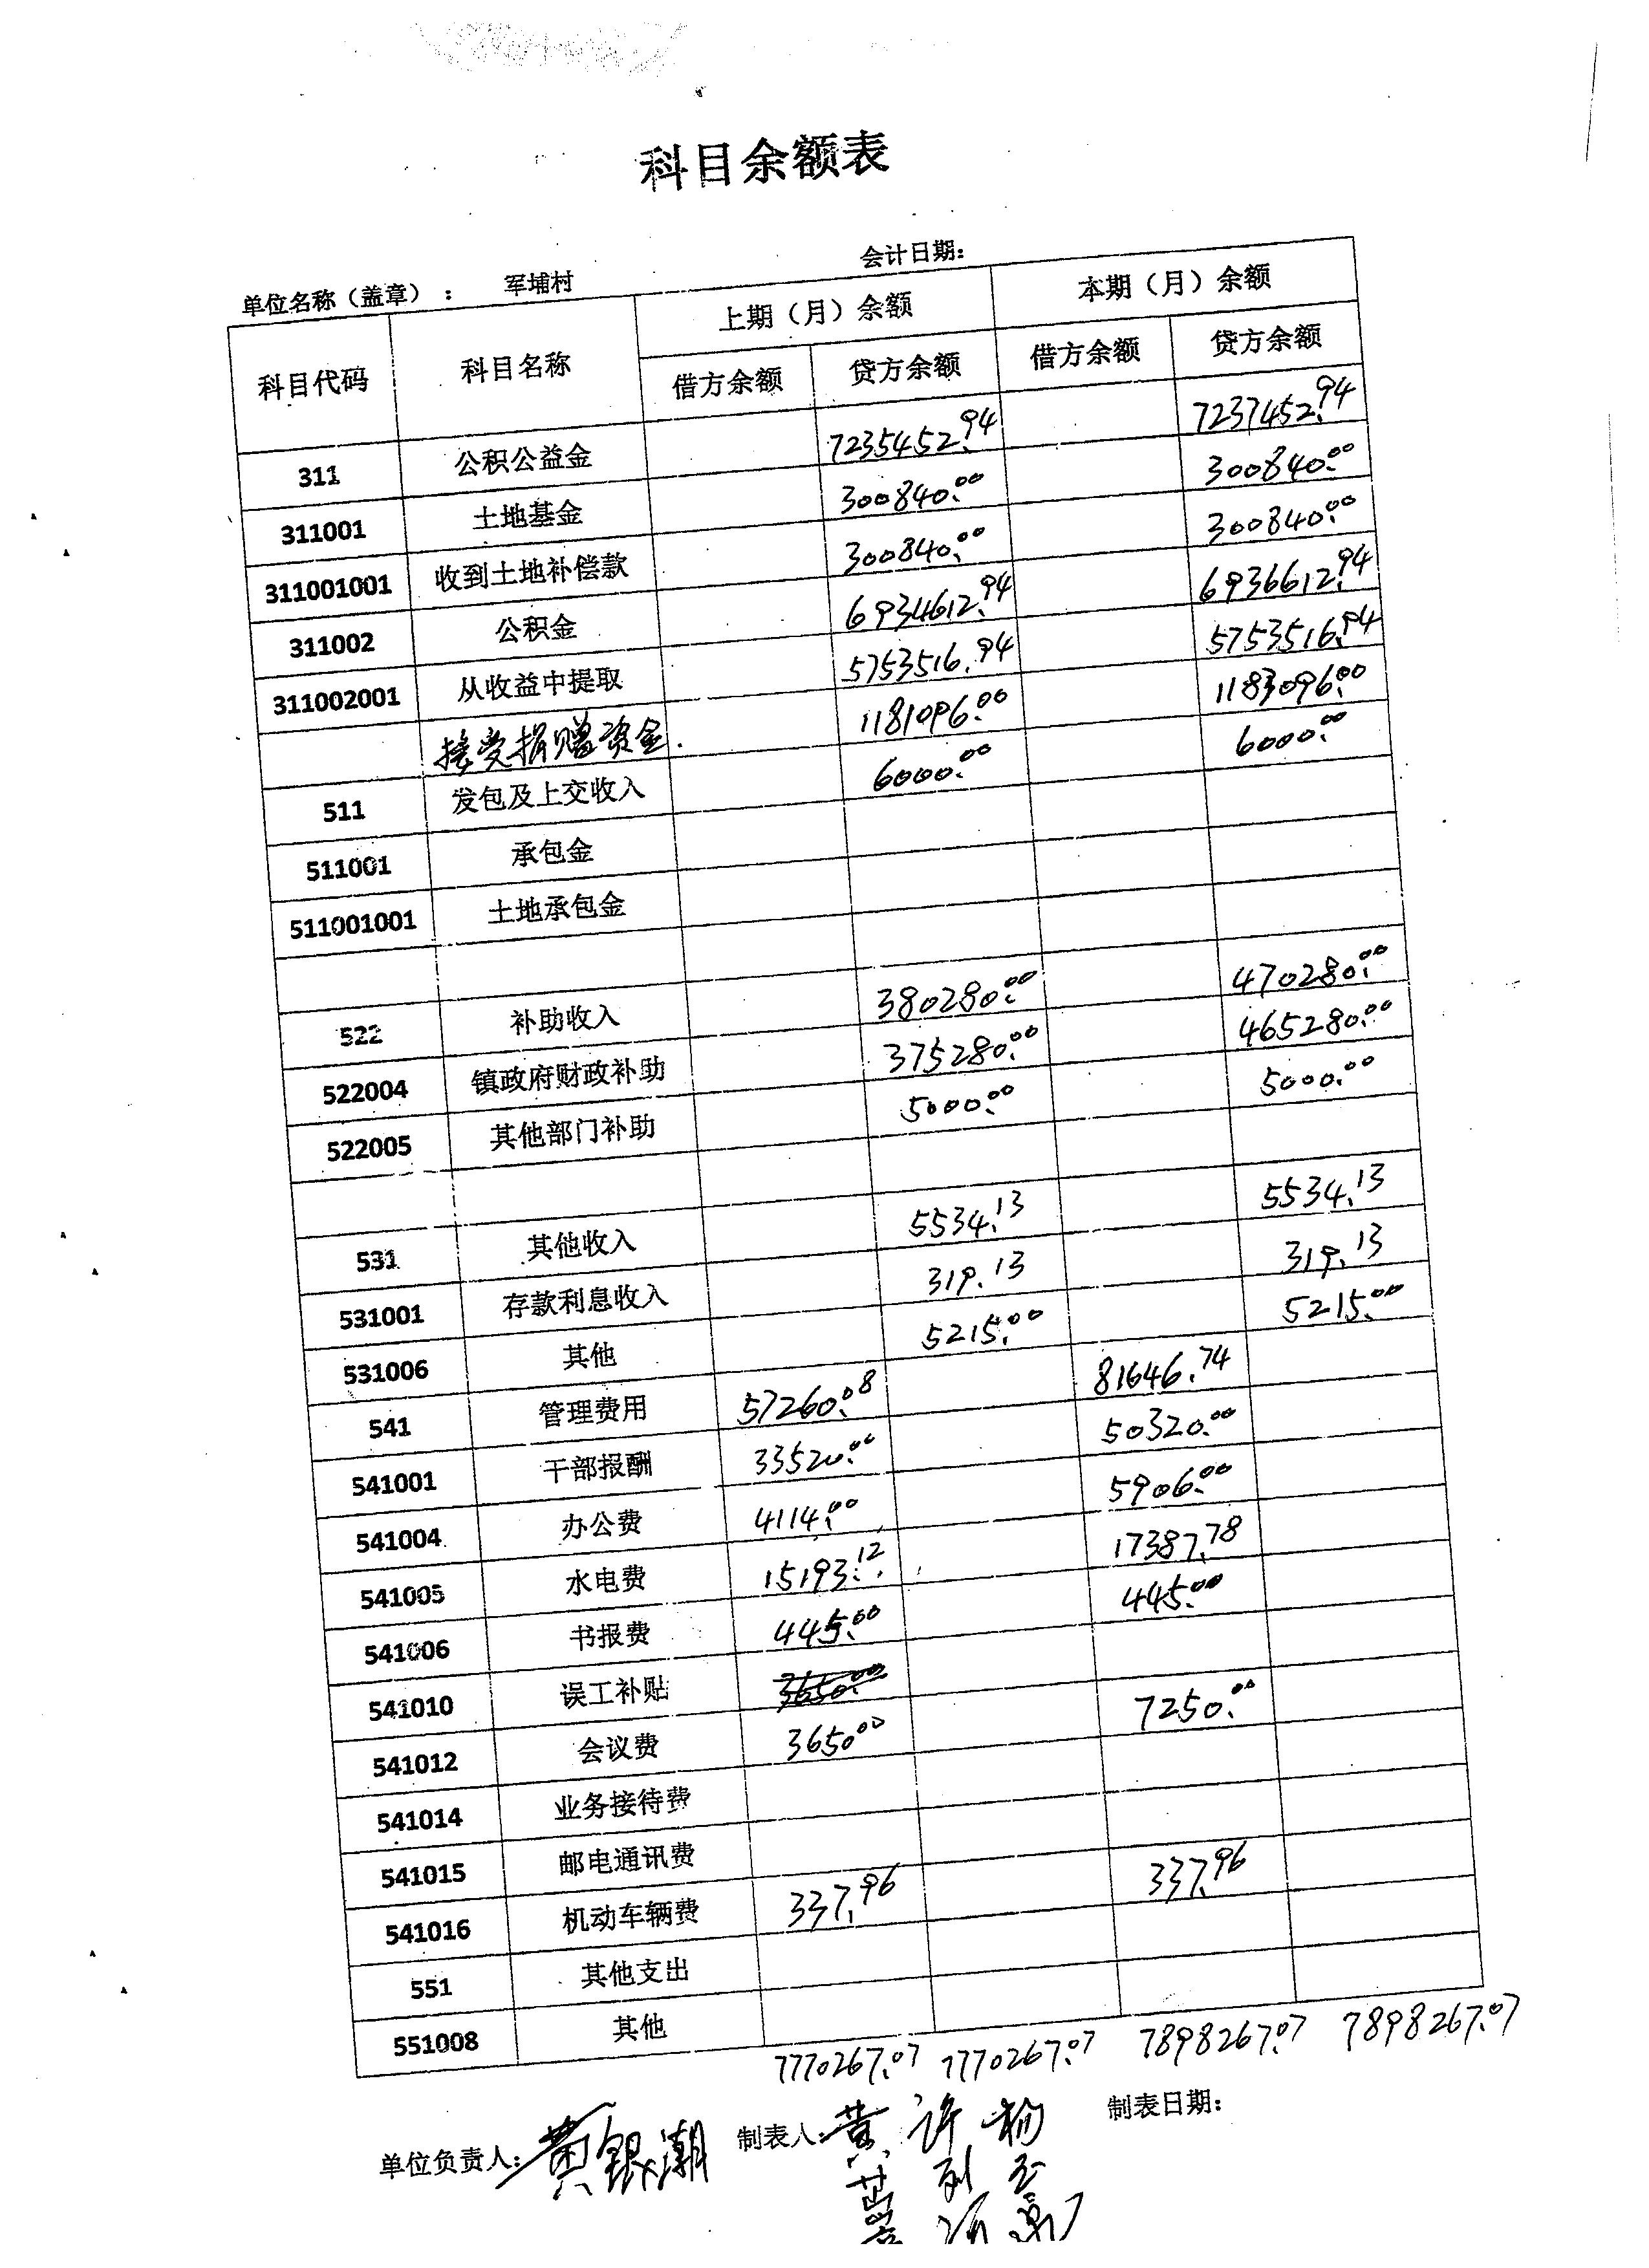 科目余额表
单位名称（盖章）： 军埔村 会计日期：
科目代码 科目名称 上期（月）余额 本期（月）余额
借方余额 贷方余额 借方余额 贷方余额
311 公积公益金 7235452.94 7237452.94
311001 土地基金 300840.00 300840.00
311001001 收到土地补偿款 300840.00 300840.00
311002 公积金 6934612.94 6936612.94
311002001 从收益中提取 5753516.94 5753516.94
接受捐赠资金. 1181096.00 1183096.00
511 发包及上交收入 6000.00 6000.00
511001 承包金
511001001 土地承包金
522 补助收入 380280.00 470280.00
522004 镇政府财政补助 375280.00 465280.00
522005 其他部门补助 5000.00 5000.00
531 其他收入 5534.13 5534.13
531001 存款利息收入 319.13 319.13
531006 其他 5215.00 5215.00
541 管理费用 57260.08 81646.74
541001 干部报酬 33520.00 50320.00
541004 办公费 4114.00 5906.00
541005 水电费 15193.12 17387.78
541006 书报费 445.00 445.00
541010 误工补贴 3650.00
541012 会议费 3650.00 7250.00
541014 业务接待费
541015 邮电通讯费
541016 机动车辆费 337.96 337.96
551 其他支出
551008 其他
7770267.07 7770267.07 7898267.07 7898267.07
单位负责人：黄银潮 制表人：黄许 制表日期：